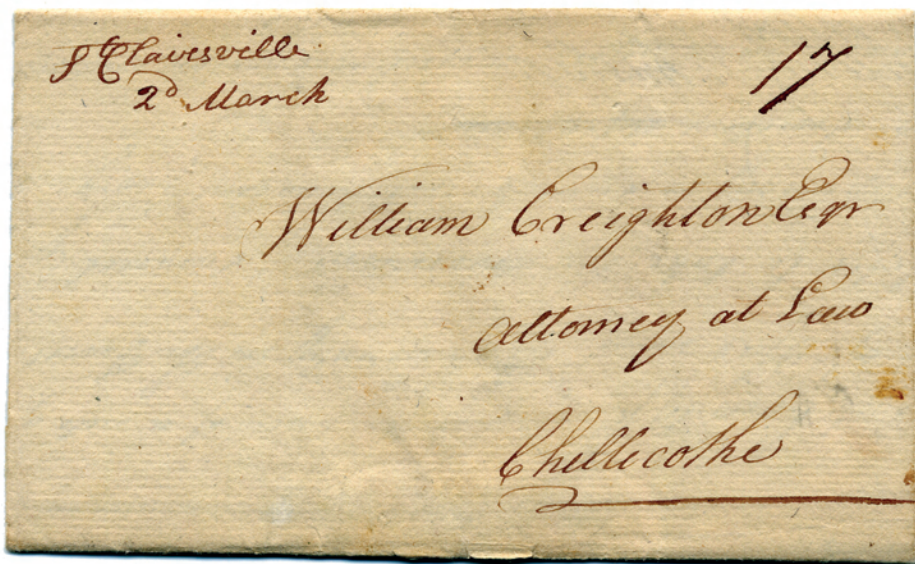 St Clairsville
2d March
17
William Creighton Esqr
Attorney at Law
Chellecothe